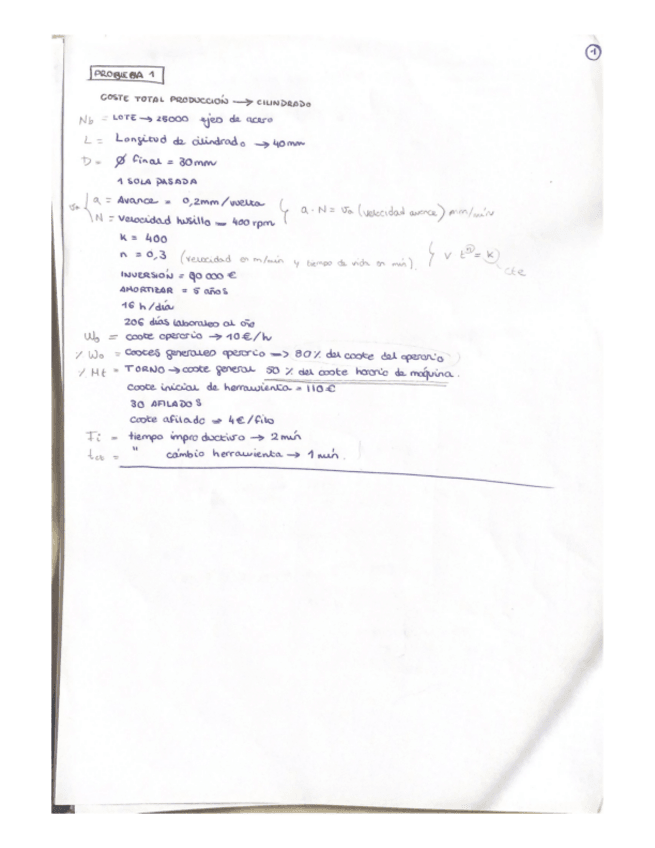 1
PROBLEMA 1
COSTE TOTAL PRODUCCIÓN → CILINDRADO
Nb = LOTE → 25000 ejes de acero
L = Longitud de cilindrado → 40 mm
D = Ø final = 30mm
1 SOLA PASADA
a = Avance = 0,2mm/vuelta
N = Velocidad husillo = 400 rpm
a · N = va (velocidad avance) mm/min
K = 400
n = 0,3 (velocidad en m/min y tiempo de vida en min). v t^n = K cte
INVERSIÓN = 90 000 €
AMORTIZAR = 5 años
16 h/día
206 días laborales al año
Wo = coste operario → 10€/h
% Wo = Costes generales operario → 80% del coste del operario
% Mt = TORNO → coste general 50 % del coste horario de máquina.
coste inicial de herramienta = 110€
30 AFILADOS
coste afilado → 4€/filo
Ti = tiempo improductivo → 2 min
tct = " cambio herramienta → 1 min.